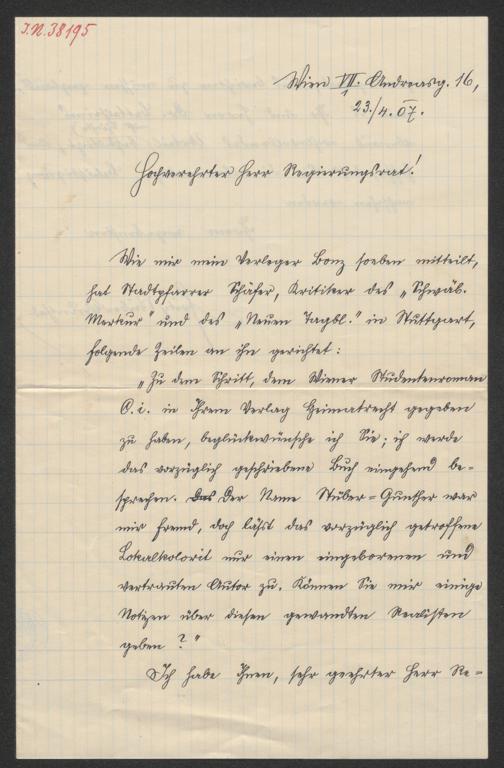 J.N. 38195
Wien VII/1. Andreasg. 16,
23./4. 07.
Hochverehrter Herr Regierungsrat!
Wie mir mein Verleger Bonz soeben mitteilt,
hat Stadtpfarrer Schäfer, Kritiker des „Schwäb.
Merkur" und des „Neuen Tagbl." in Stuttgart,
folgende Zeilen an ihn gerichtet:
„Zu dem Schritt, dem Wiener Studentenroman
C. i. in Ihrem Verlag Heimatrecht gegeben
zu haben, beglückwünsche ich Sie; ich werde
das vorzüglich geschriebene Buch eingehend be-
sprechen. Das Der Name Stüber=Gunther war
mir fremd, doch läßt das vorzüglich getroffene
Lokalkolorit nur einen eingeborenen und
vertrauten Autor zu. Können Sie mir einige
Notizen über diesen gewandten Realisten
geben?"
Ich habe Ihnen, sehr geehrter Herr Re-